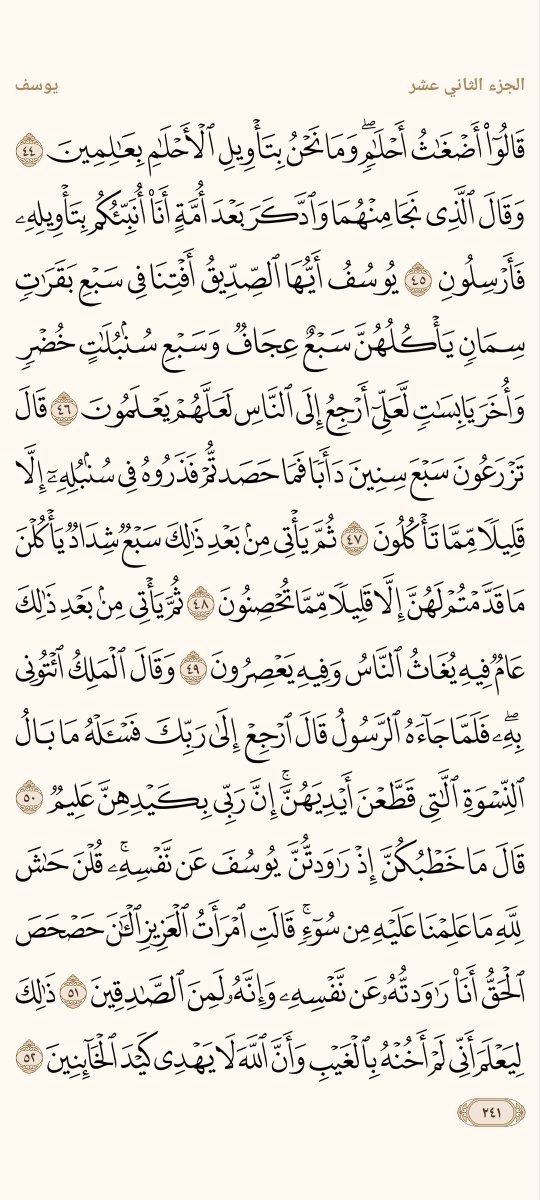 الجزء الثاني عشر
يوسف
قَالُوٓا۟ أَضْغَـٰثُ أَحْلَـٰمٍۢ ۖ وَمَا نَحْنُ بِتَأْوِيلِ ٱلْأَحْلَـٰمِ بِعَـٰلِمِينَ ٤٤
وَقَالَ ٱلَّذِى نَجَا مِنْهُمَا وَٱدَّكَرَ بَعْدَ أُمَّةٍ أَنَا۠ أُنَبِّئُكُم بِتَأْوِيلِهِۦ
فَأَرْسِلُونِ ٤٥ يُوسُفُ أَيُّهَا ٱلصِّدِّيقُ أَفْتِنَا فِى سَبْعِ بَقَرَٰتٍۢ
سِمَانٍۢ يَأْكُلُهُنَّ سَبْعٌ عِجَافٌۭ وَسَبْعِ سُنۢبُلَـٰتٍ خُضْرٍۢ
وَأُخَرَ يَابِسَـٰتٍۢ لَّعَلِّىٓ أَرْجِعُ إِلَى ٱلنَّاسِ لَعَلَّهُمْ يَعْلَمُونَ ٤٦ قَالَ
تَزْرَعُونَ سَبْعَ سِنِينَ دَأَبًۭا فَمَا حَصَدتُّمْ فَذَرُوهُ فِى سُنۢبُلِهِۦٓ إِلَّا
قَلِيلًۭا مِّمَّا تَأْكُلُونَ ٤٧ ثُمَّ يَأْتِى مِنۢ بَعْدِ ذَٰلِكَ سَبْعٌۭ شِدَادٌۭ يَأْكُلْنَ
مَا قَدَّمْتُمْ لَهُنَّ إِلَّا قَلِيلًۭا مِّمَّا تُحْصِنُونَ ٤٨ ثُمَّ يَأْتِى مِنۢ بَعْدِ ذَٰلِكَ
عَامٌۭ فِيهِ يُغَاثُ ٱلنَّاسُ وَفِيهِ يَعْصِرُونَ ٤٩ وَقَالَ ٱلْمَلِكُ ٱئْتُونِى
بِهِۦ ۖ فَلَمَّا جَآءَهُ ٱلرَّسُولُ قَالَ ٱرْجِعْ إِلَىٰ رَبِّكَ فَسْـَٔلْهُ مَا بَالُ
ٱلنِّسْوَةِ ٱلَّـٰتِى قَطَّعْنَ أَيْدِيَهُنَّ ۚ إِنَّ رَبِّى بِكَيْدِهِنَّ عَلِيمٌۭ ٥٠
قَالَ مَا خَطْبُكُنَّ إِذْ رَٰوَدتُّنَّ يُوسُفَ عَن نَّفْسِهِۦ ۚ قُلْنَ حَـٰشَ
لِلَّهِ مَا عَلِمْنَا عَلَيْهِ مِن سُوٓءٍۢ ۚ قَالَتِ ٱمْرَأَتُ ٱلْعَزِيزِ ٱلْـَٔـٰنَ حَصْحَصَ
ٱلْحَقُّ أَنَا۠ رَٰوَدتُّهُۥ عَن نَّفْسِهِۦ وَإِنَّهُۥ لَمِنَ ٱلصَّـٰدِقِينَ ٥١ ذَٰلِكَ
لِيَعْلَمَ أَنِّى لَمْ أَخُنْهُ بِٱلْغَيْبِ وَأَنَّ ٱللَّهَ لَا يَهْدِى كَيْدَ ٱلْخَآئِنِينَ ٥٢
٢٤١